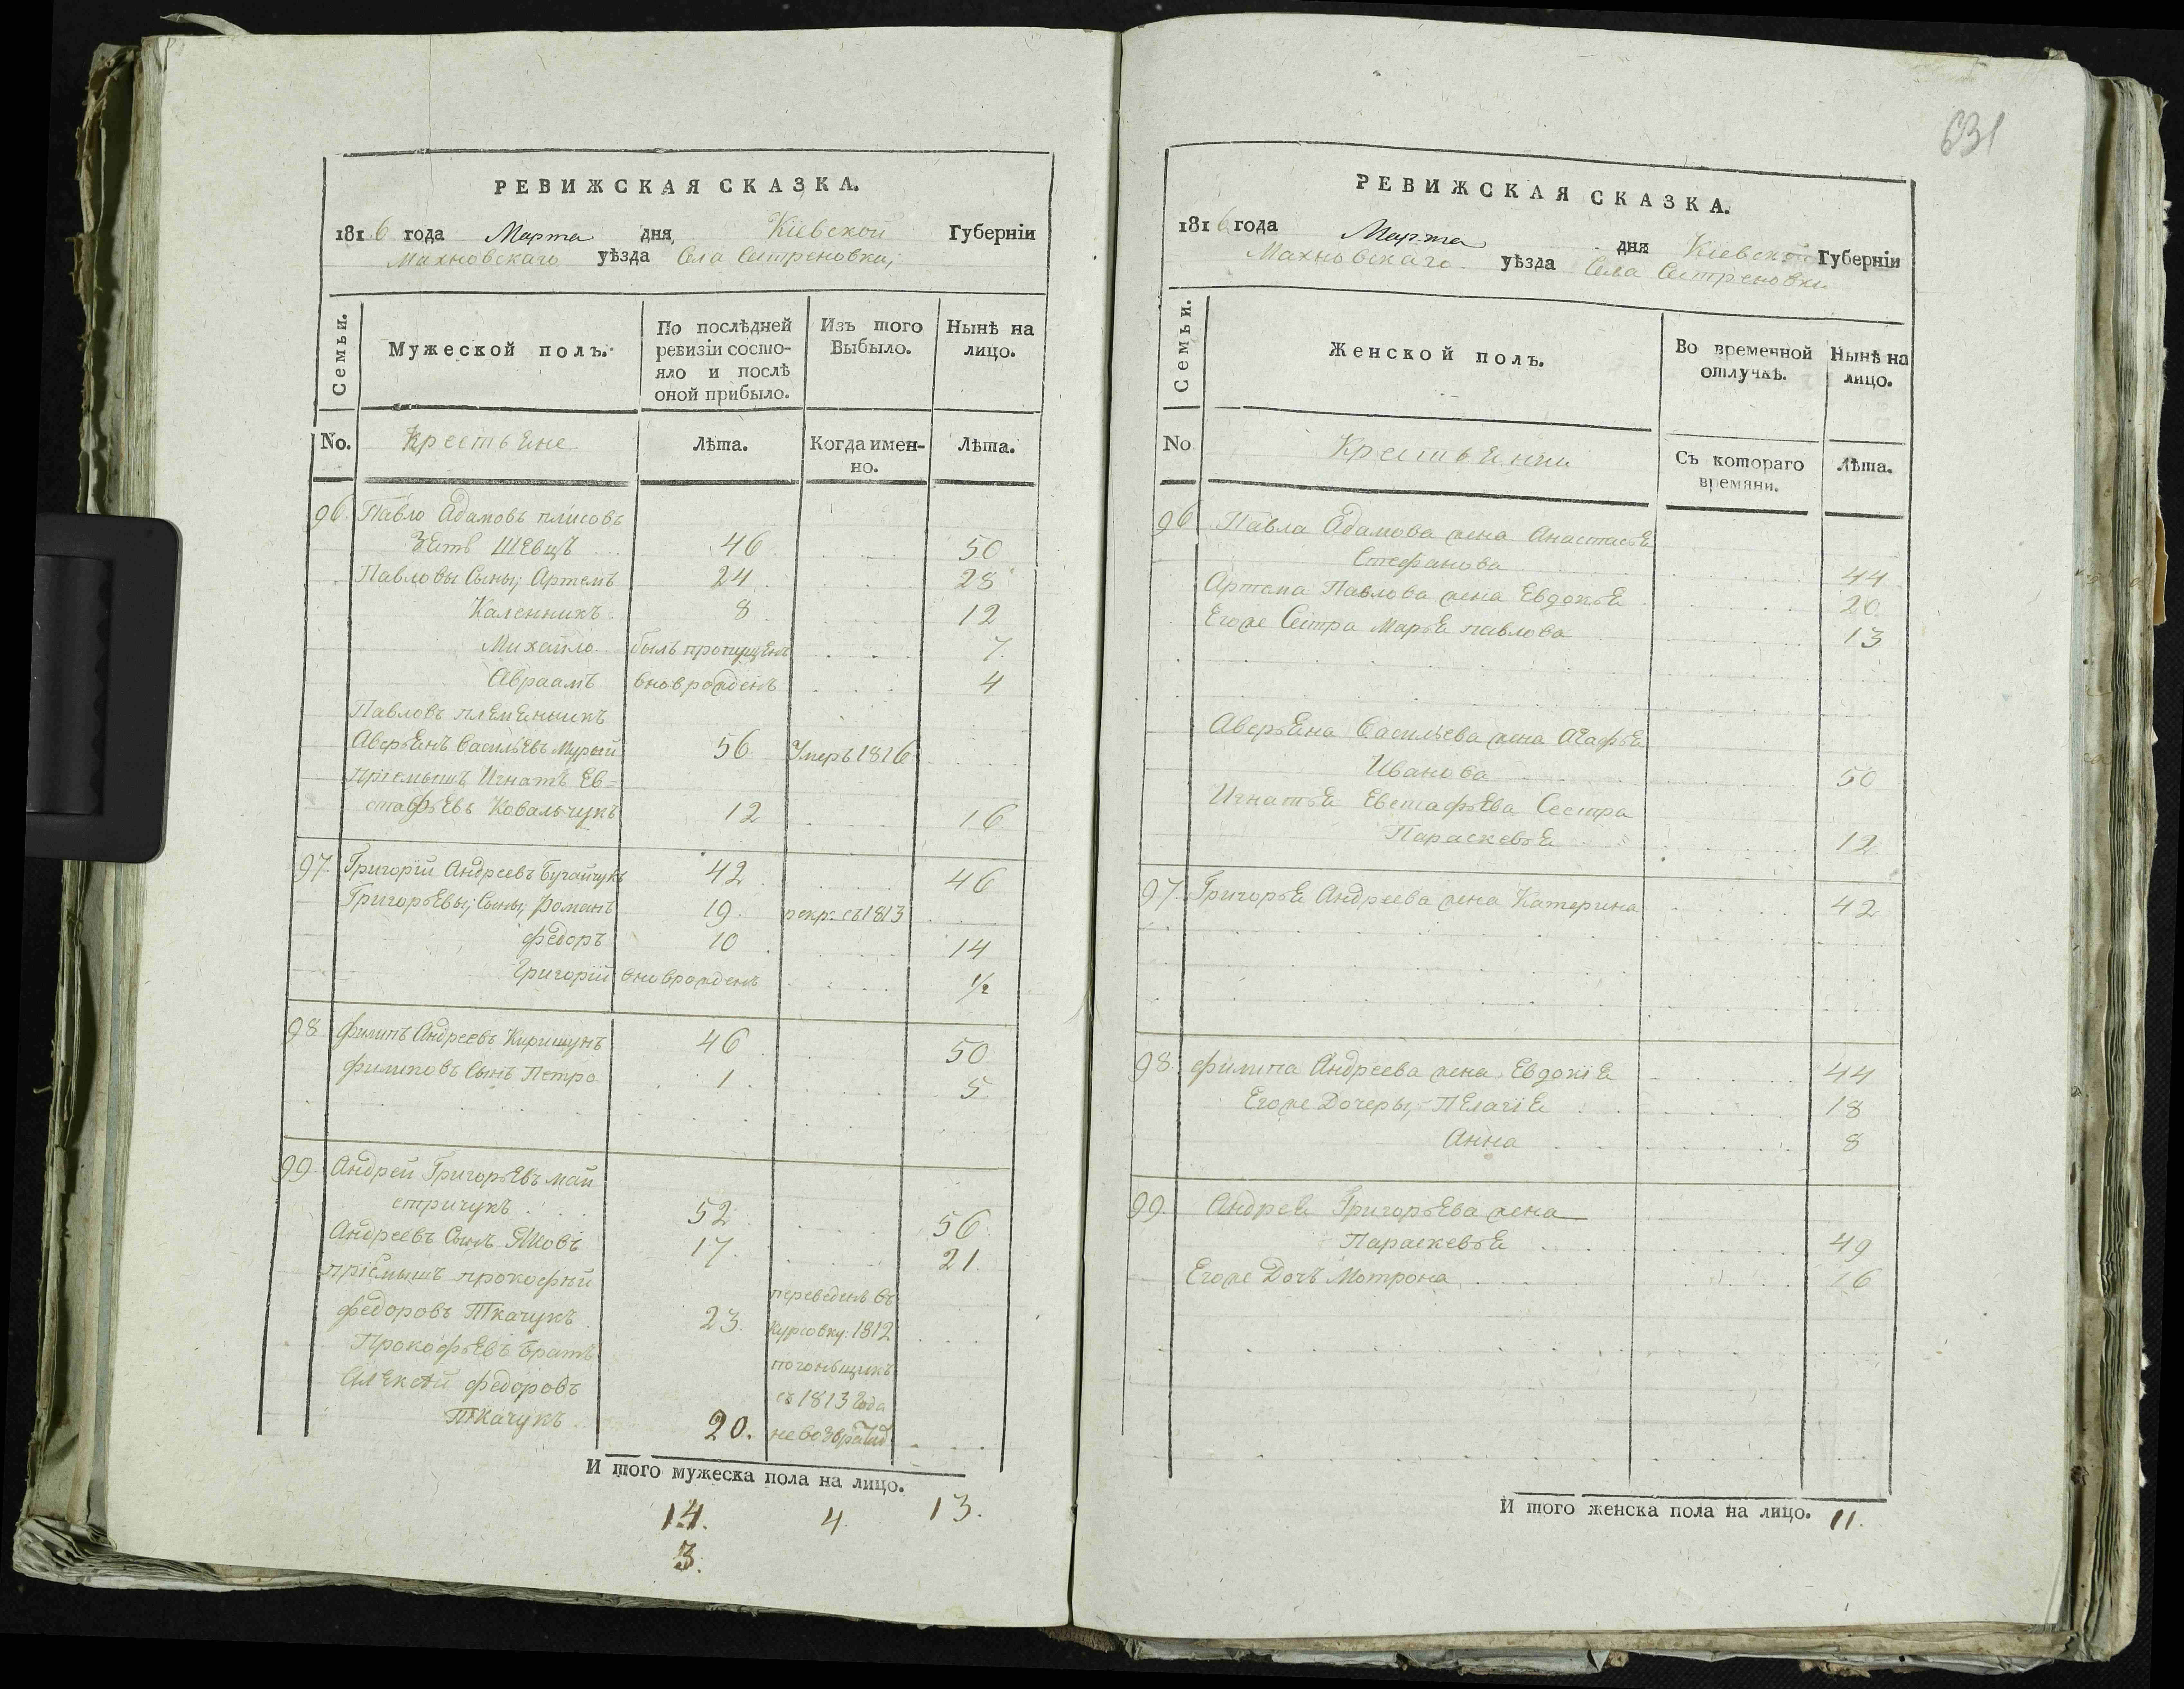 РЕВИЖСКАЯ СКАЗКА.
1816 года Марта дня Кіевской Губерніи
Махновскаго уѣзда Села Сестреновки,
Семьи.
Мужеской полъ.
По послѣдней ревизіи состояло и послѣ оной прибыло.
Изъ того Выбыло.
Нынѣ на лицо.
No. Крестьяне Лѣта. Когда именно. Лѣта.
96. Павло Адамовъ плисовъ
Зять Швецъ 46 50
Павловы Сыны; Артемъ 24 28
Каленникъ 8 12
Михайло былъ пропущенъ 7
Авраамъ вноврожденъ 4
Павловъ племенникъ
Аверьянъ Васильевъ Мурый 56 Умеръ 1816
Пріемышъ Игнатъ Ев-
стафьевъ Ковальчукъ 12 16
97. Григорій Андреевъ Бугайчукъ 42 46
Григорьевы; Сыны, Романъ 19. рекр: съ 1813
федоръ 10 14
Григорій вноврожденъ ½
98 филипъ Андреевъ Киришунъ 46 50
филиповъ Сынъ Петро 1 5
99. Андрей Григорьевъ май
стричукъ 52 56
Андреевъ Сынъ Яковъ 17. 21.
пріемышъ прокофій переведенъ въ
федоровъ Ткачукъ 23. Курсовку: 1812
Прокофьевъ братъ погоньщикъ
Алексѣй федоровъ съ 1813 года
Ткачукъ 20. невозврати
И того мужеска пола на лицо.
14. 4. 13.
3.
631
РЕВИЖСКАЯ СКАЗКА.
1816 года Марта дня Кіевской Губерніи
Махновскаго уѣзда Села Сестреновки
Семьи.
Женской полъ.
Во временной отлучкѣ.
Нынѣ на лицо.
No Крестьянки Съ котораго времяни. Лѣта.
96 Павла Адамова жена Анастасья
Стефанова 44
Артема Павлова жена Евдокья 20
Егоже Сестра Марья павлова 13
Аверьяна Васильева жена Агафья
Иванова 50
Игнатья Евстафьева Сестра
Параскевья 12
97. Григорья Андреева жена Катерина 42
98. филипа Андреева жена Евдокія 44
Егоже Дочеры, Пелагія 18
Анна 8
99. Андрея Григорьева жена
Параскевья 49
Егоже Дочъ Мотрона 16
И того женска пола на лицо. 11.